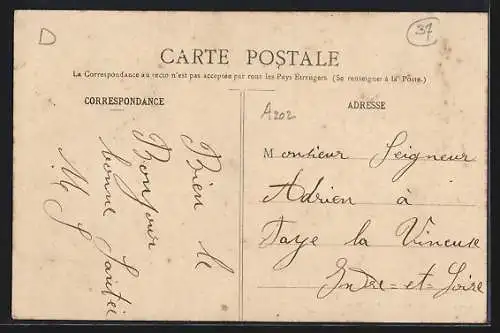 D
37
CARTE POSTALE
La Correspondance au recto n'est pas acceptée par tous les Pays Etrangers (Se renseigner à la Poste.)
CORRESPONDANCE
Bien le
Bonjour
bonne Santée
M S
ADRESSE
A202
Monsieur Seigneur
Adrien à
Faye la Vineuse
Indre=et=Loire